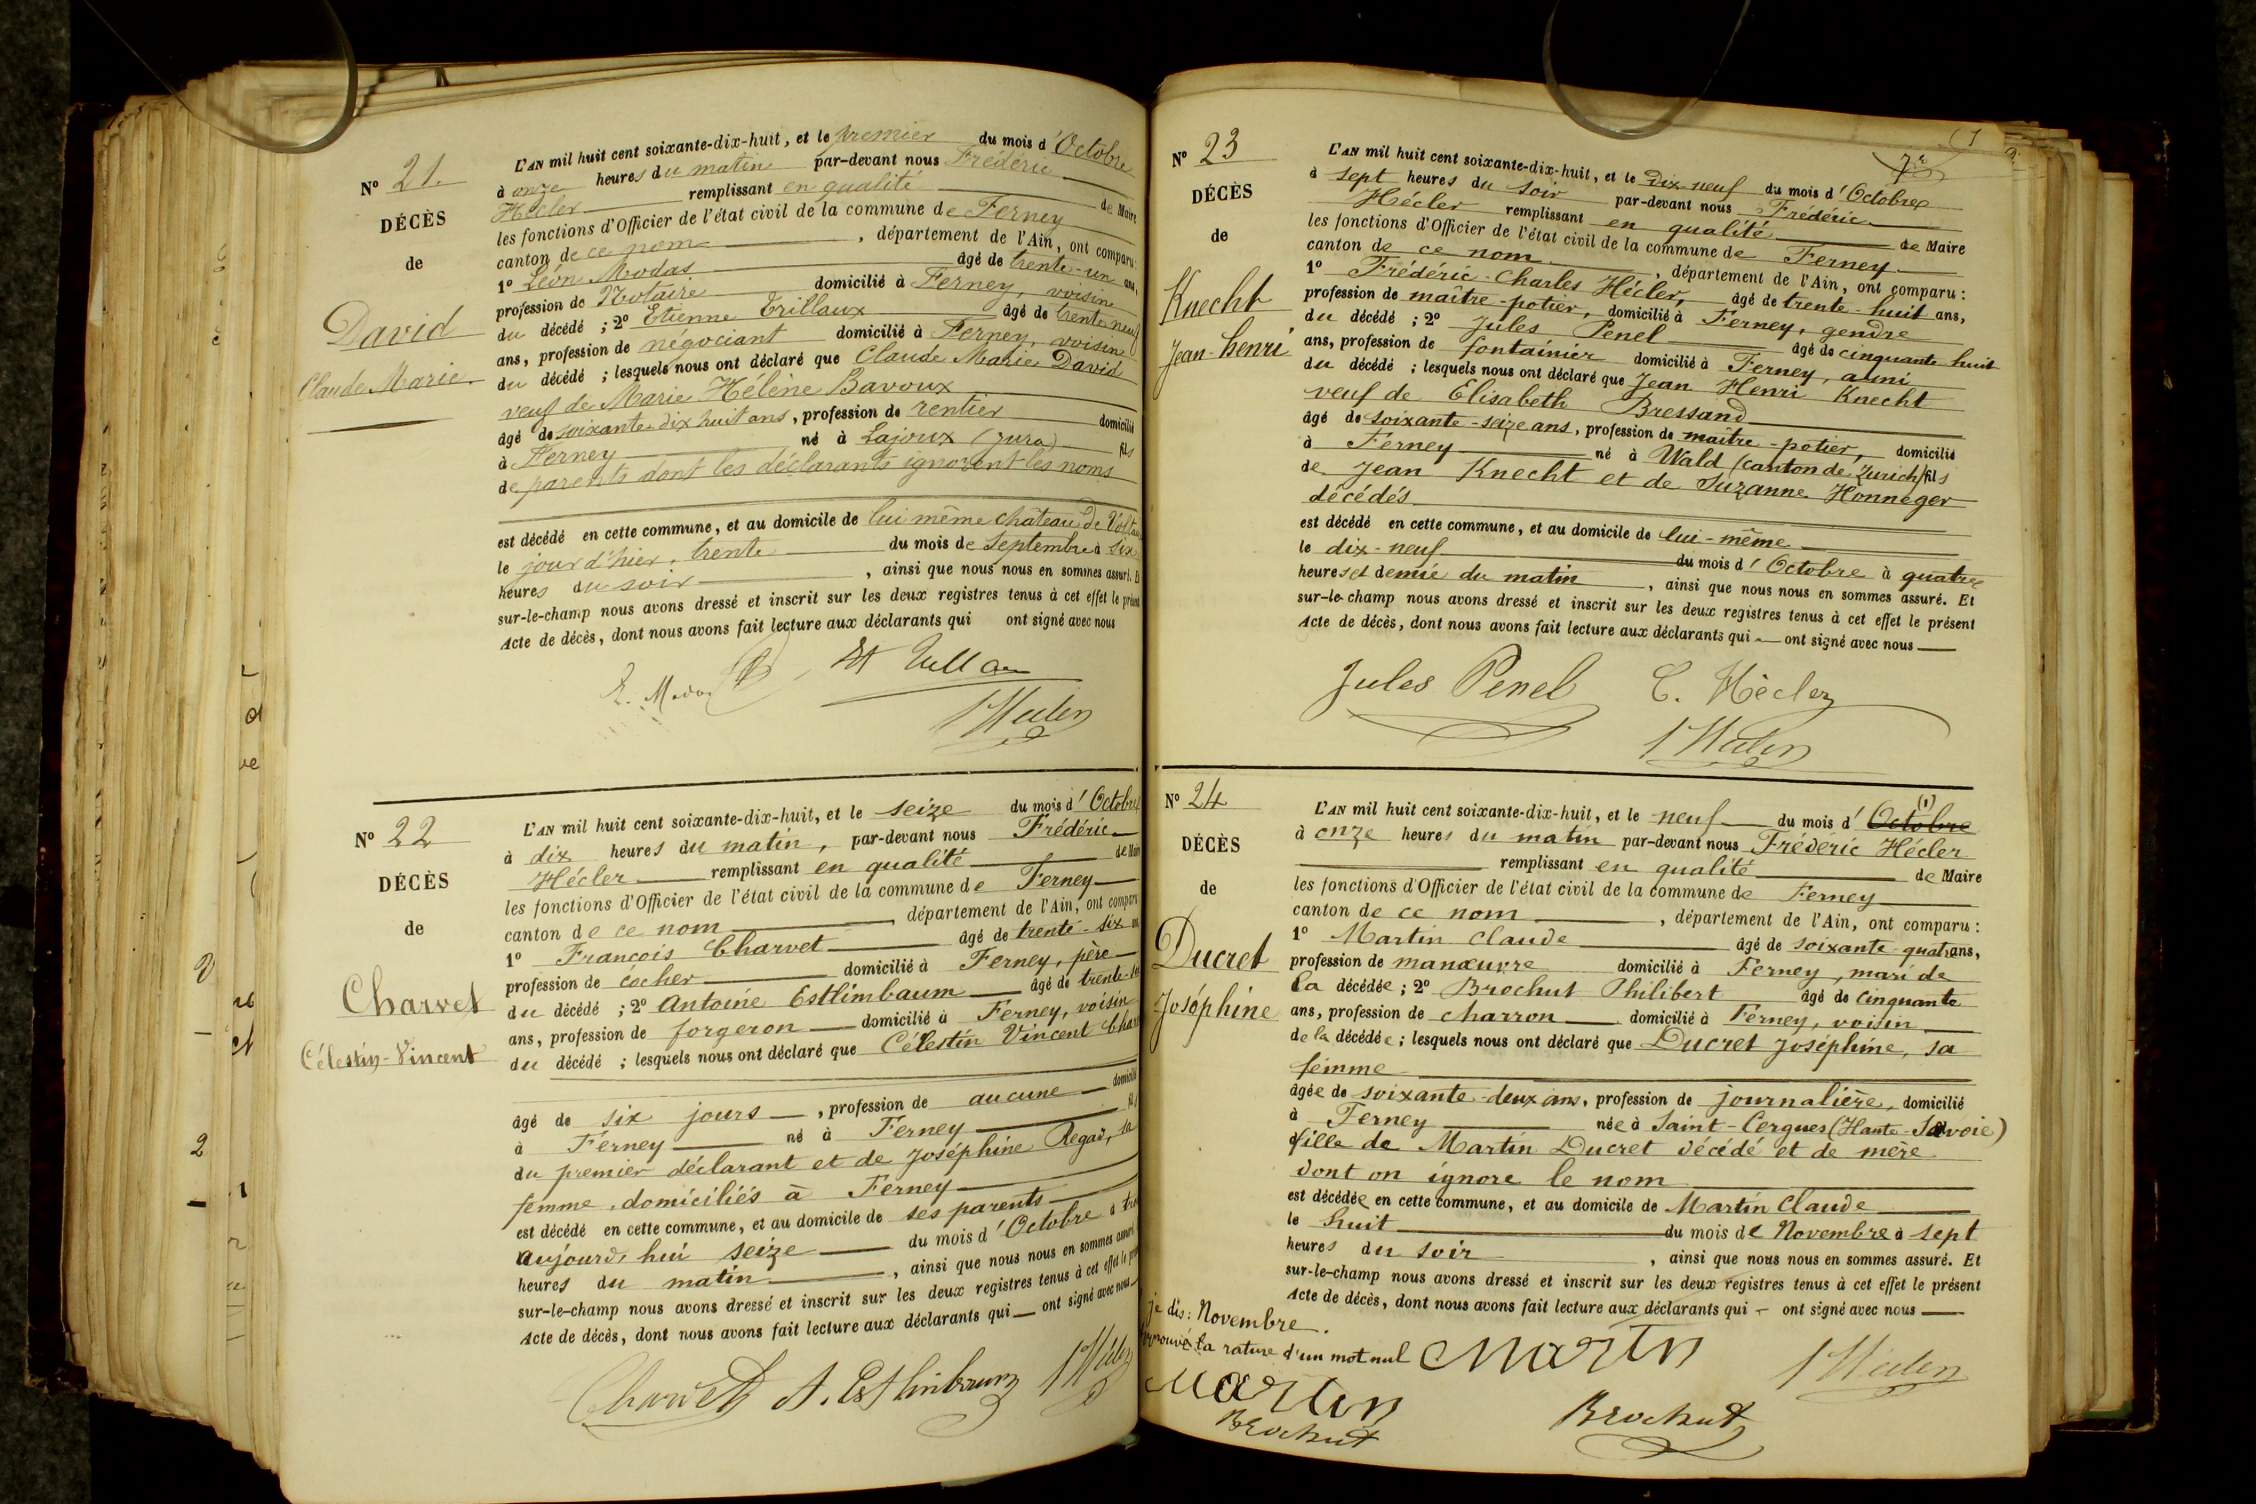 N° 21.
DÉCÈS
de
David
Claude Marie
L'AN mil huit cent soixante-dix-huit, et le premier du mois d'Octobre
à onze heures du matin par-devant nous Frédéric
Hécler remplissant en qualité de Maire
les fonctions d'Officier de l'état civil de la commune de Ferney
canton de ce nom, département de l'Ain, ont comparu:
1° Léon Modas âgé de trente-un ans,
profession de Notaire domicilié à Ferney, voisin
du décédé ; 2° Etienne Trillaux âgé de trente neuf
ans, profession de négociant domicilié à Ferney, voisin
du décédé ; lesquels nous ont déclaré que Claude Marie David
veuf de Marie Hélène Bavoux
âgé de soixante-dix huit ans, profession de rentier domicilié
à Ferney né à Lajoux (Jura) fils
de parents dont les déclarants ignorent les noms
est décédé en cette commune, et au domicile de lui même château de
le jour d'hier, trente du mois de Septembre à six
heures du soir, ainsi que nous nous en sommes assuré. Et
sur-le-champ nous avons dressé et inscrit sur les deux registres tenus à cet effet le présent
Acte de décès, dont nous avons fait lecture aux déclarants qui ont signé avec nous
N° 22
DÉCÈS
de
Charvet
Célestin-Vincent
L'AN mil huit cent soixante-dix-huit, et le seize du mois d'Octobre
à dix heures du matin, par-devant nous Frédéric
Hécler remplissant en qualité de Maire
les fonctions d'Officier de l'état civil de la commune de Ferney
canton de ce nom, département de l'Ain, ont comparu
1° François Charvet âgé de trente-six
profession de cocher domicilié à Ferney, père
du décédé ; 2° Antoine Estlimbaum âgé de trente
ans, profession de forgeron domicilié à Ferney, voisin
du décédé ; lesquels nous ont déclaré que Célestin Vincent
âgé de six jours, profession de aucune domicilié
à Ferney né à Ferney fils
du premier déclarant et de Joséphine Regad, sa
femme, domiciliés à Ferney
est décédé en cette commune, et au domicile de ses parents
aujourd'hui seize du mois d'Octobre à
heures du matin, ainsi que nous nous en sommes assuré
sur-le-champ nous avons dressé et inscrit sur les deux registres tenus à cet effet le
Acte de décès, dont nous avons fait lecture aux déclarants qui ont signé avec nous
Charvet A. Estlimbaum Hécler
N° 23
DÉCÈS
de
Knecht
Jean-henri
L'AN mil huit cent soixante-dix-huit, et le Dix neuf du mois d'Octobre
à sept heures du soir par-devant nous Frédéric
Hécler remplissant en qualité de Maire
les fonctions d'Officier de l'état civil de la commune de Ferney
canton de ce nom, département de l'Ain, ont comparu:
1° Frédéric-Charles Hécler, âgé de trente-huit ans,
profession de maître-potier, domicilié à Ferney, gendre
du décédé ; 2° Jules Penel âgé de cinquante huit
ans, profession de fontainier domicilié à Ferney, ami
du décédé ; lesquels nous ont déclaré que Jean Henri Knecht
veuf de Elisabeth Bressand
âgé de soixante-seize ans, profession de maître-potier, domicilié
à Ferney né à Wald (canton de Zurich) fils
de Jean Knecht et de Suzanne Honneger
décédés
est décédé en cette commune, et au domicile de lui-même
le dix-neuf du mois d'Octobre à quatre
heures et demie du matin, ainsi que nous nous en sommes assuré. Et
sur-le-champ nous avons dressé et inscrit sur les deux registres tenus à cet effet le présent
Acte de décès, dont nous avons fait lecture aux déclarants qui ont signé avec nous
Jules Penel C. Hécler
Hécler
N° 24
DÉCÈS
de
Ducret
Joséphine
L'AN mil huit cent soixante-dix-huit, et le neuf du mois d'Octobre (1)
à onze heures du matin par-devant nous Fréderic Hécler
remplissant en qualité de Maire
les fonctions d'Officier de l'état civil de la commune de Ferney
canton de ce nom, département de l'Ain, ont comparu:
1° Martin Claude âgé de soixante-quatre ans,
profession de manœuvre domicilié à Ferney, mari de
la décédée ; 2° Brochut Philibert âgé de cinquante
ans, profession de charron domicilié à Ferney, voisin
de la décédée ; lesquels nous ont déclaré que Ducret Joséphine, sa
femme
âgée de soixante-deux ans, profession de journalière, domicilié
à Ferney née à Saint-Cergues (Haute-Savoie)
fille de Martin Ducret décédé et de mère
dont on ignore le nom
est décédée en cette commune, et au domicile de Martin Claude
le huit du mois de Novembre à sept
heures du soir, ainsi que nous nous en sommes assuré. Et
sur-le-champ nous avons dressé et inscrit sur les deux registres tenus à cet effet le présent
Acte de décès, dont nous avons fait lecture aux déclarants qui ont signé avec nous
je dis: Novembre.
la rature d'un mot nul Martin Hécler
Martin
Brochut Brochut